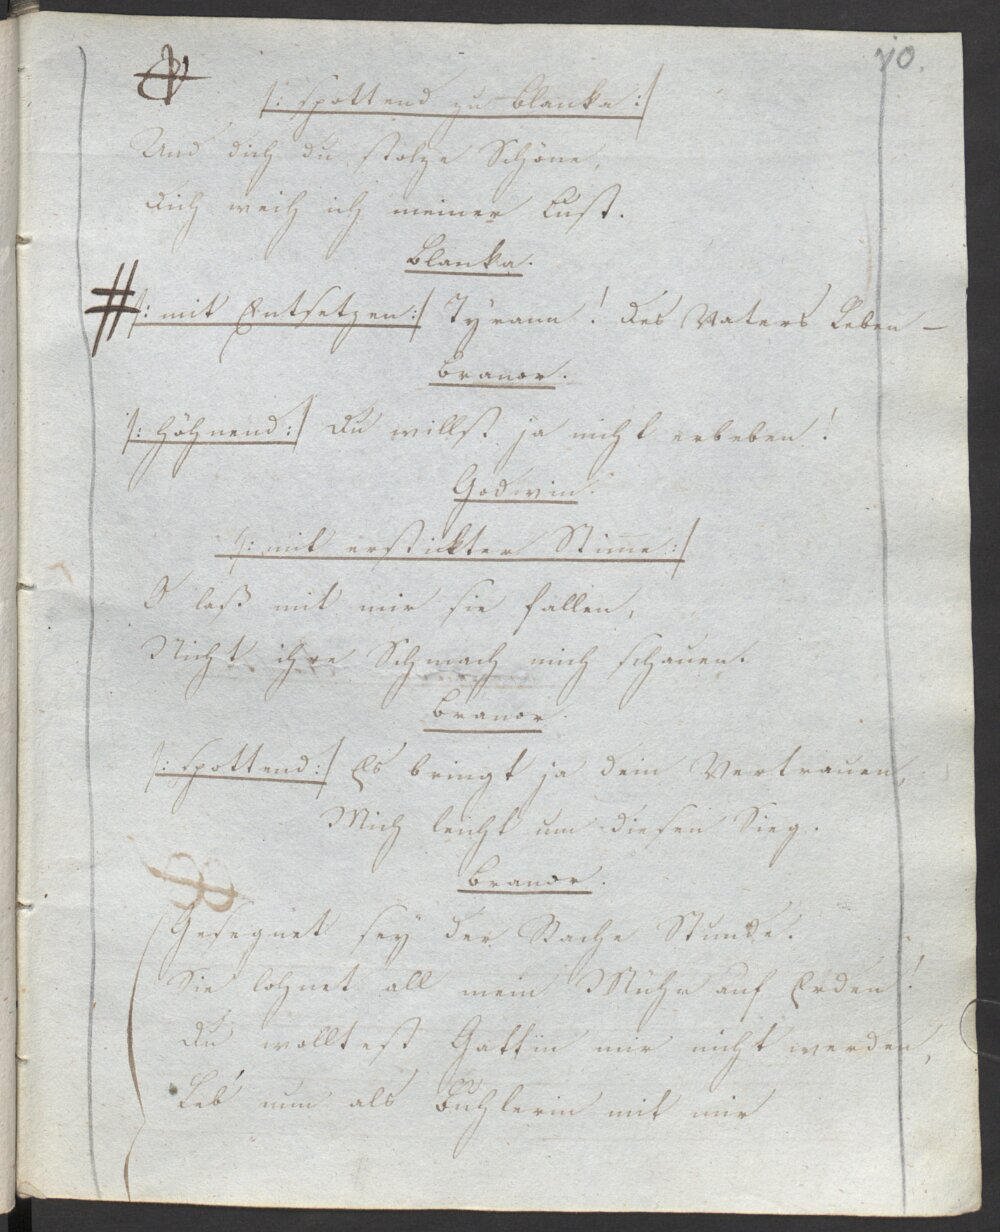 70.
/: spottend zu Blanka :/
Und dich du stolze Schöne,
dich weih ich meiner Lust.
Blanka.
/: mit Entsetzen :/ Tyrann! des Vaters Leben –
Branor.
/: höhnend :/ Du willst ja nicht erbeben!
Godwin.
/: mit erstickter Stimme :/
O laß mit mir sie fallen,
Nicht ihre Schmach mich schauen.
Branor
/: spottend :/ Es bringt ja dein Vertrauen,
Mich leicht um diesen Sieg.
Branor.
Gesegnet sey der Rache Stunde.
Sie lohnet all mein Mühn auf Erden!
Du wolltest Gattin mir nicht werden,
Leb' nun als Buhlerin mit mir